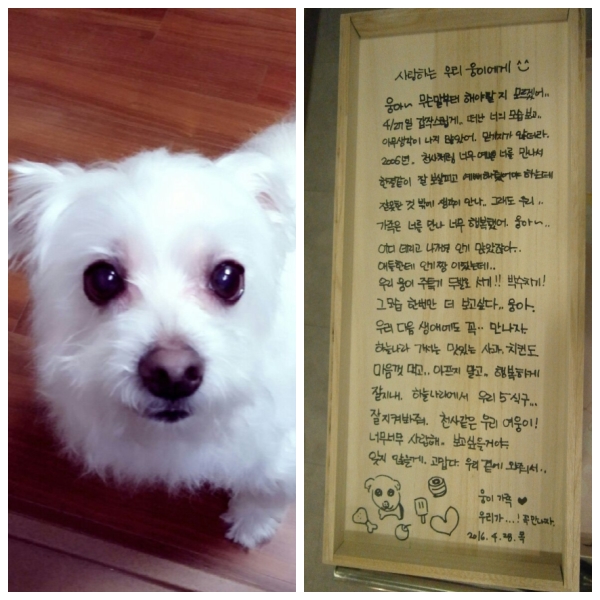 사랑하는 우리 웅이에게
웅아~ 무슨말부터 해야할 지 모르겠어..
4/27일 갑작스럽게.. 떠난 너의 모습보고..
아무생각이 나지 않았어. 믿겨지가 않더라.
2006년. 천사처럼 너무 예쁜 너를 만나서
한결같이 잘 보살피고 해줬어야 하는데
잘못한 것 밖에 생각이 안나.. 그래도 우리..
가족은 너를 만나 너무 행복했어. 웅아~..
어디 데리고 나가면 인기 많았잖아..
애들한테 인기짱 이었는데..
우리 웅이 주특기 두발로 서기!! 박수치기!
그모습 한번만 더 보고싶다.. 웅아.
우리 다음 생애에도 꼭.. 만나자
하늘나라 가서는 맛있는 사과, 치킨도
마음껏 먹고.. 아프지 말고.. 행복하게
잘지내. 하늘나라에서 우리 5식구...
잘지켜봐줘. 천사같은 우리 여웅이!
너무너무 사랑해. 보고싶을거야
잊지 않을게. 고맙다. 우리 곁에 와줘서..
웅이 가족
우리가...! 꼭만나자.
2016. 4. 28. 목